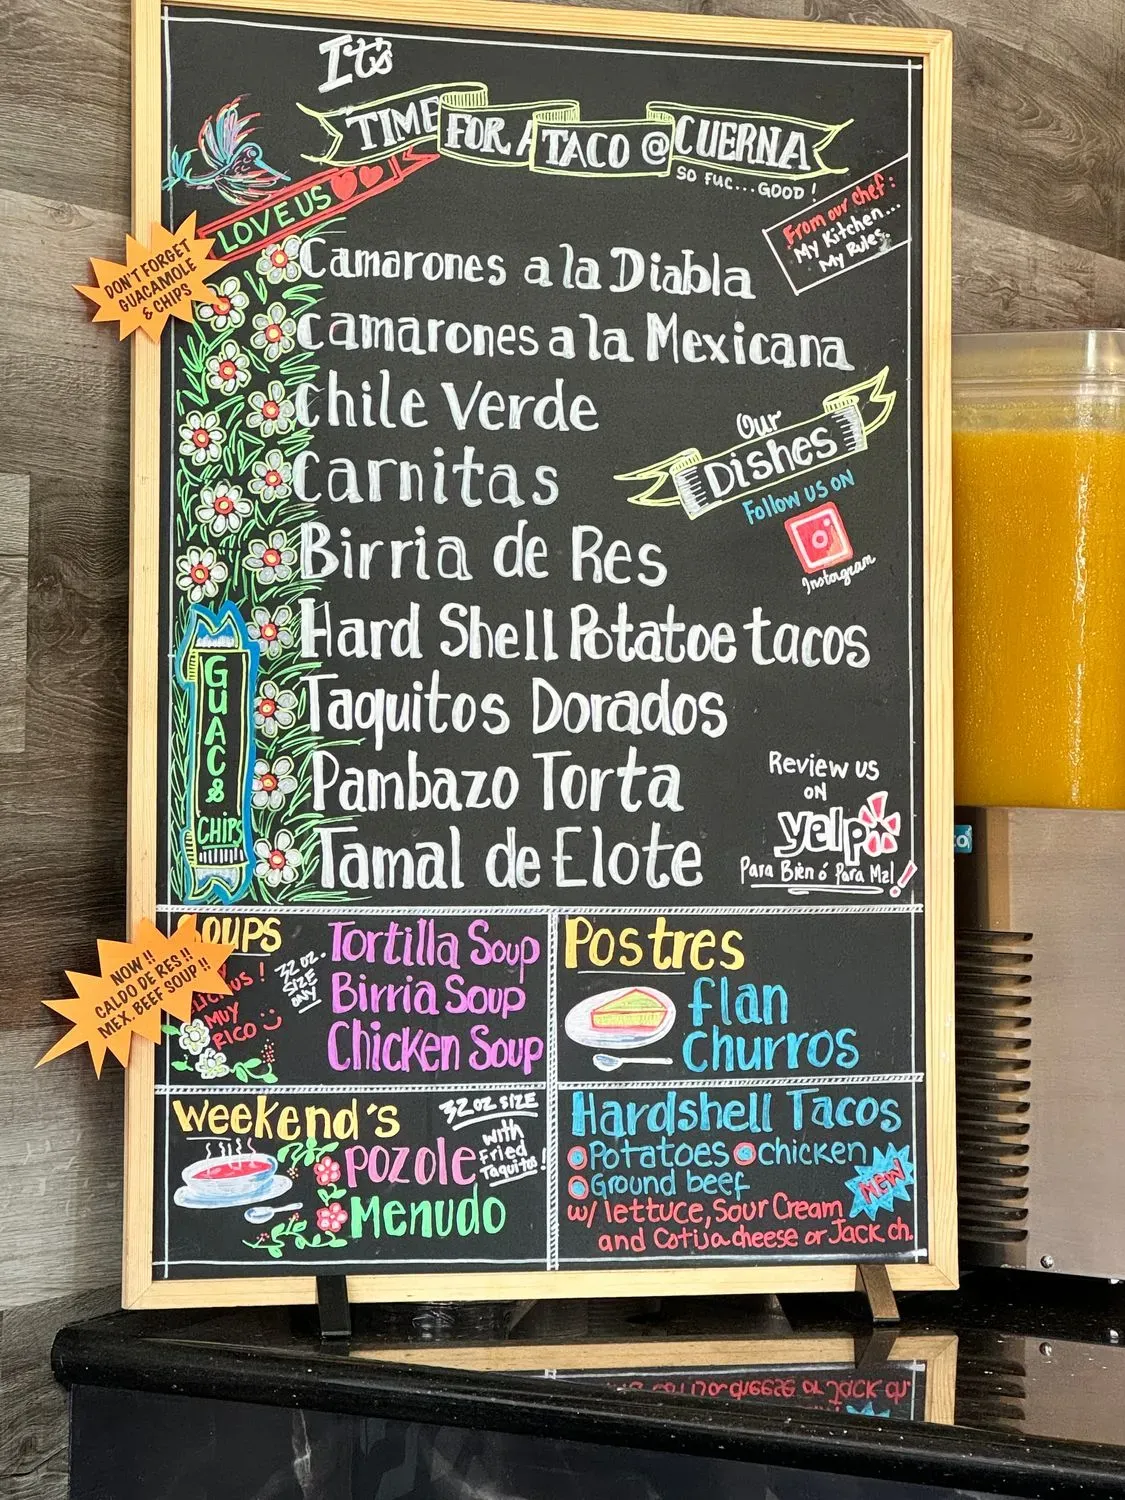 It's
TIME FOR A TACO @ CUERNA
SO FUC...GOOD!
LOVE US
From our chef:
My Kitchen...
My Rules.
DON'T FORGET
GUACAMOLE
& CHIPS
Camarones a la Diabla
Camarones a la Mexicana
Chile Verde
Carnitas
Our
Dishes
Follow us on
Instagram
Birria de Res
Hard Shell Potatoe tacos
Taquitos Dorados
Pambazo Torta
Tamal de Elote
GUAC &
CHIPS
Review us
on
yelp
Para Bien ó Para Mal!
SOUPS
NOW !!
CALDO DE RES !!
MEX. BEEF SOUP !!
MUY
RICO
32 oz.
SIZE
only
Tortilla Soup
Birria Soup
Chicken Soup
Postres
flan
Churros
Weekend's
32 oz SIZE
with
Fried
Taquitos!
POZOLE
Menudo
Hardshell Tacos
Potatoes chicken
Ground beef
NEW
w/ lettuce, Sour Cream
and Cotija cheese or Jack ch.